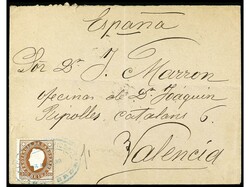 España
Sor Dn J. Marron
oficinas de Dn Joaquin
Ripolles, Catalans 6.
Valencia